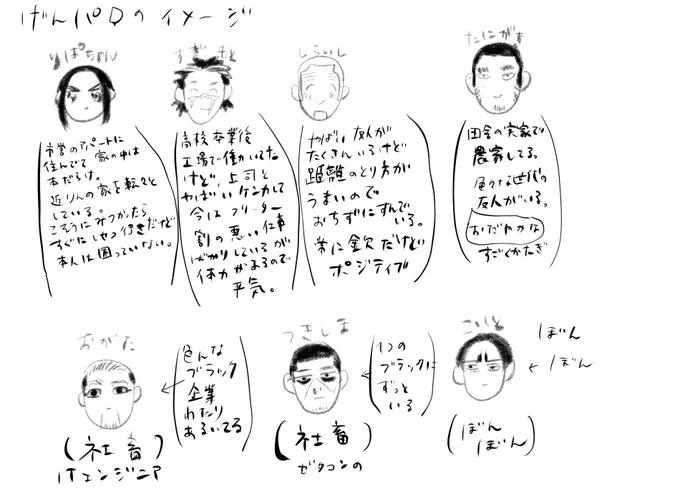 げんパロのイメージ
りぱちゃん
市営のアパートに
住んでて 家の中は
本だらけ。
近りんの家を転々と
している。
ころうに みつかたら
すぐに しせつ行きだけど
本人は困っていない。
すぎもと
高校卒業後
工場で働いてた
けど、上司と
やばいケンカして
今は フリーター
割の悪い仕事
ばかりしているが
体力があるので
平気。
しらいし
やばい 友人が
たくさん いるけど
距離のとり方が
うまいので
おちずにすんで
いる。
常に金欠だけど
ポジティブ
たにがき
田舎の実家で
農家してる。
色々な世代の
友人がいる。
おだやかな
すごくかたぎ
おがた
(社畜)
ITエンジニア
色んな
ブラック
企業
わたり
あるいてる
つきしま
(社畜)
ゼネコンの
1つの
ブラックに
ずっと
いる
こいと
(ぼん
ぼん)
ぼん
← ぼん